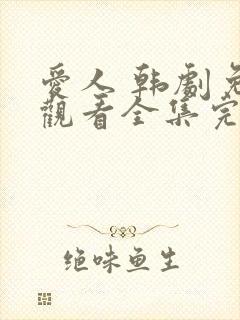 愛人 韩劇免
觀看全集完
绝味鱼生